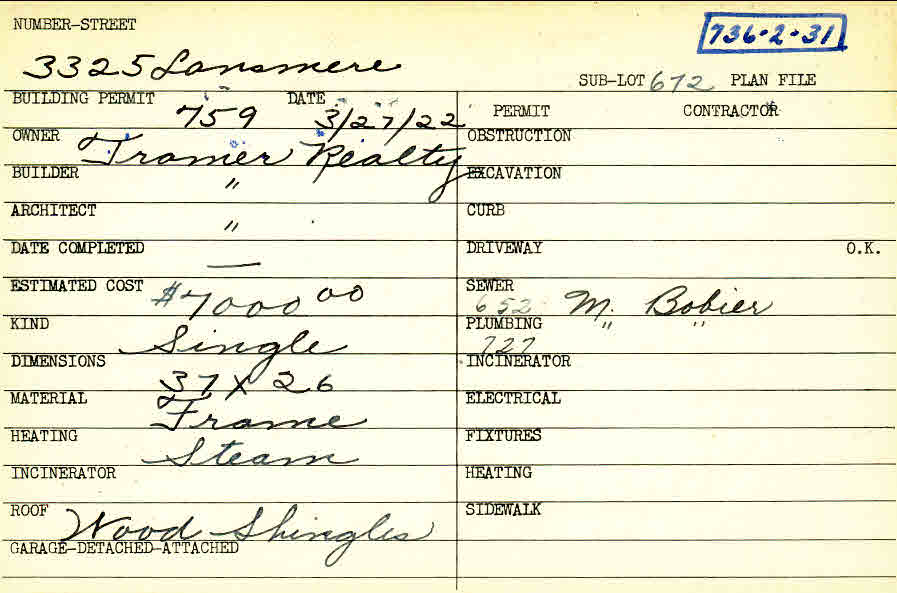 NUMBER-STREET
736-2-31
3325 Lansmere
SUB-LOT 672 PLAN FILE
BUILDING PERMIT 759 DATE 3/27/22
PERMIT CONTRACTOR
OWNER Tramer Realty
OBSTRUCTION
BUILDER "
EXCAVATION
ARCHITECT "
CURB
DATE COMPLETED —
DRIVEWAY O.K.
ESTIMATED COST $7000 00
SEWER 652 M. Bobier
KIND Single
PLUMBING 727 " "
DIMENSIONS 37 X 26
INCINERATOR
MATERIAL Frame
ELECTRICAL
HEATING Steam
FIXTURES
INCINERATOR
HEATING
ROOF Wood Shingles
SIDEWALK
GARAGE-DETACHED-ATTACHED